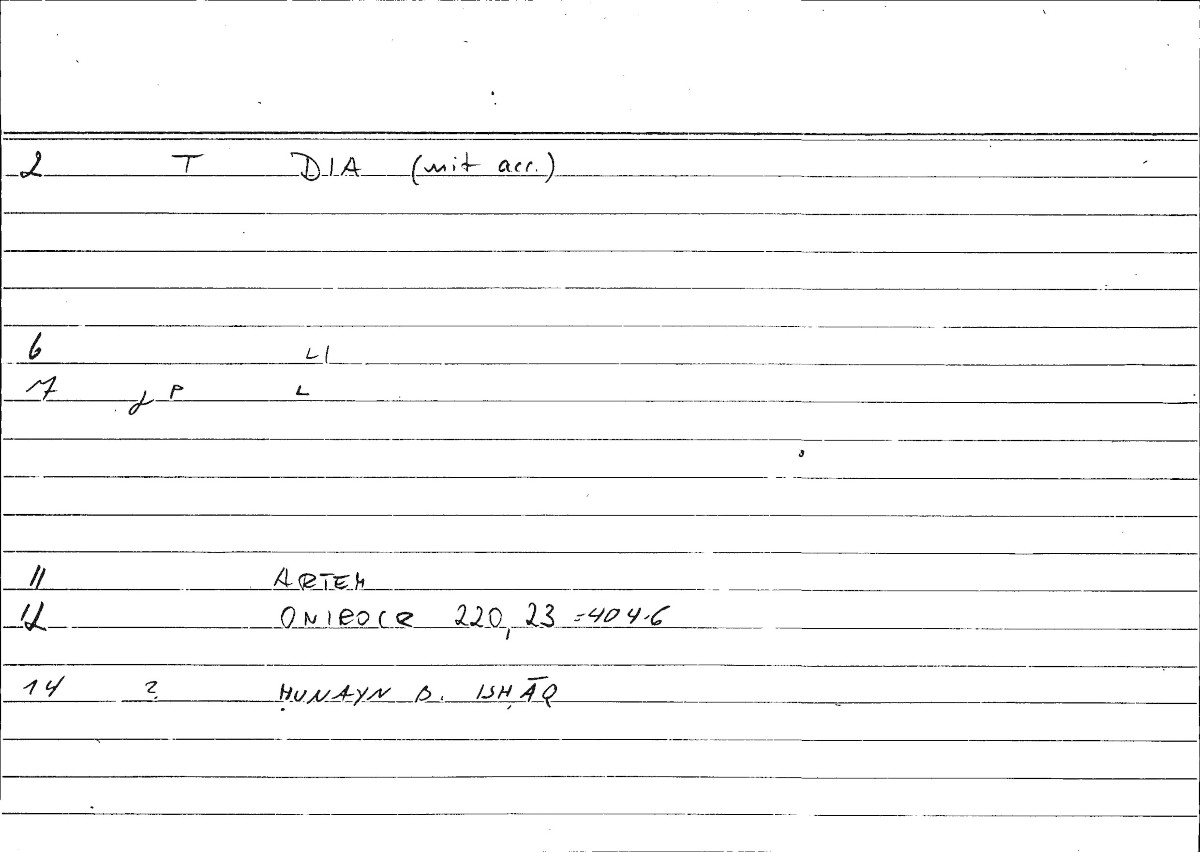 2 T DIA (mit acc.)
6 LI
7 P L
11 ARTEM
12 ONIROCR 220,23 = 404.6
14 2 ḤUNAYN B. ISḤĀQ